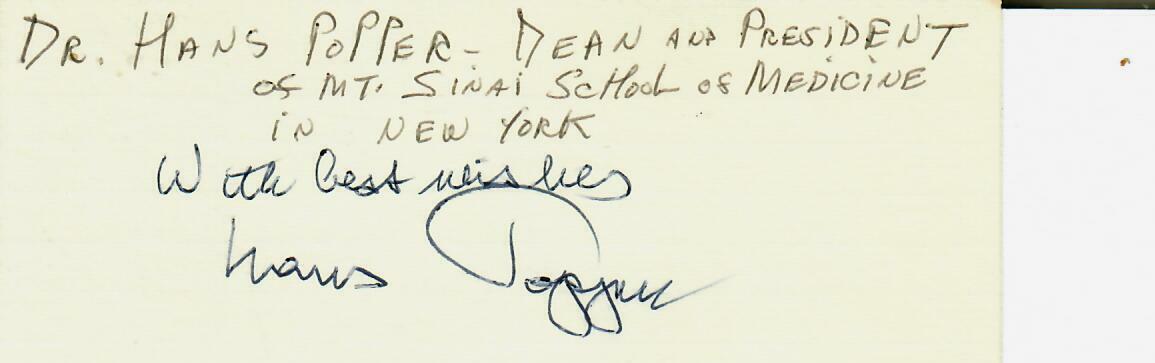 DR. HANS POPPER - DEAN AND PRESIDENT
OF MT. SINAI SCHOOL OF MEDICINE
IN NEW YORK
With best wishes
Hans Popper